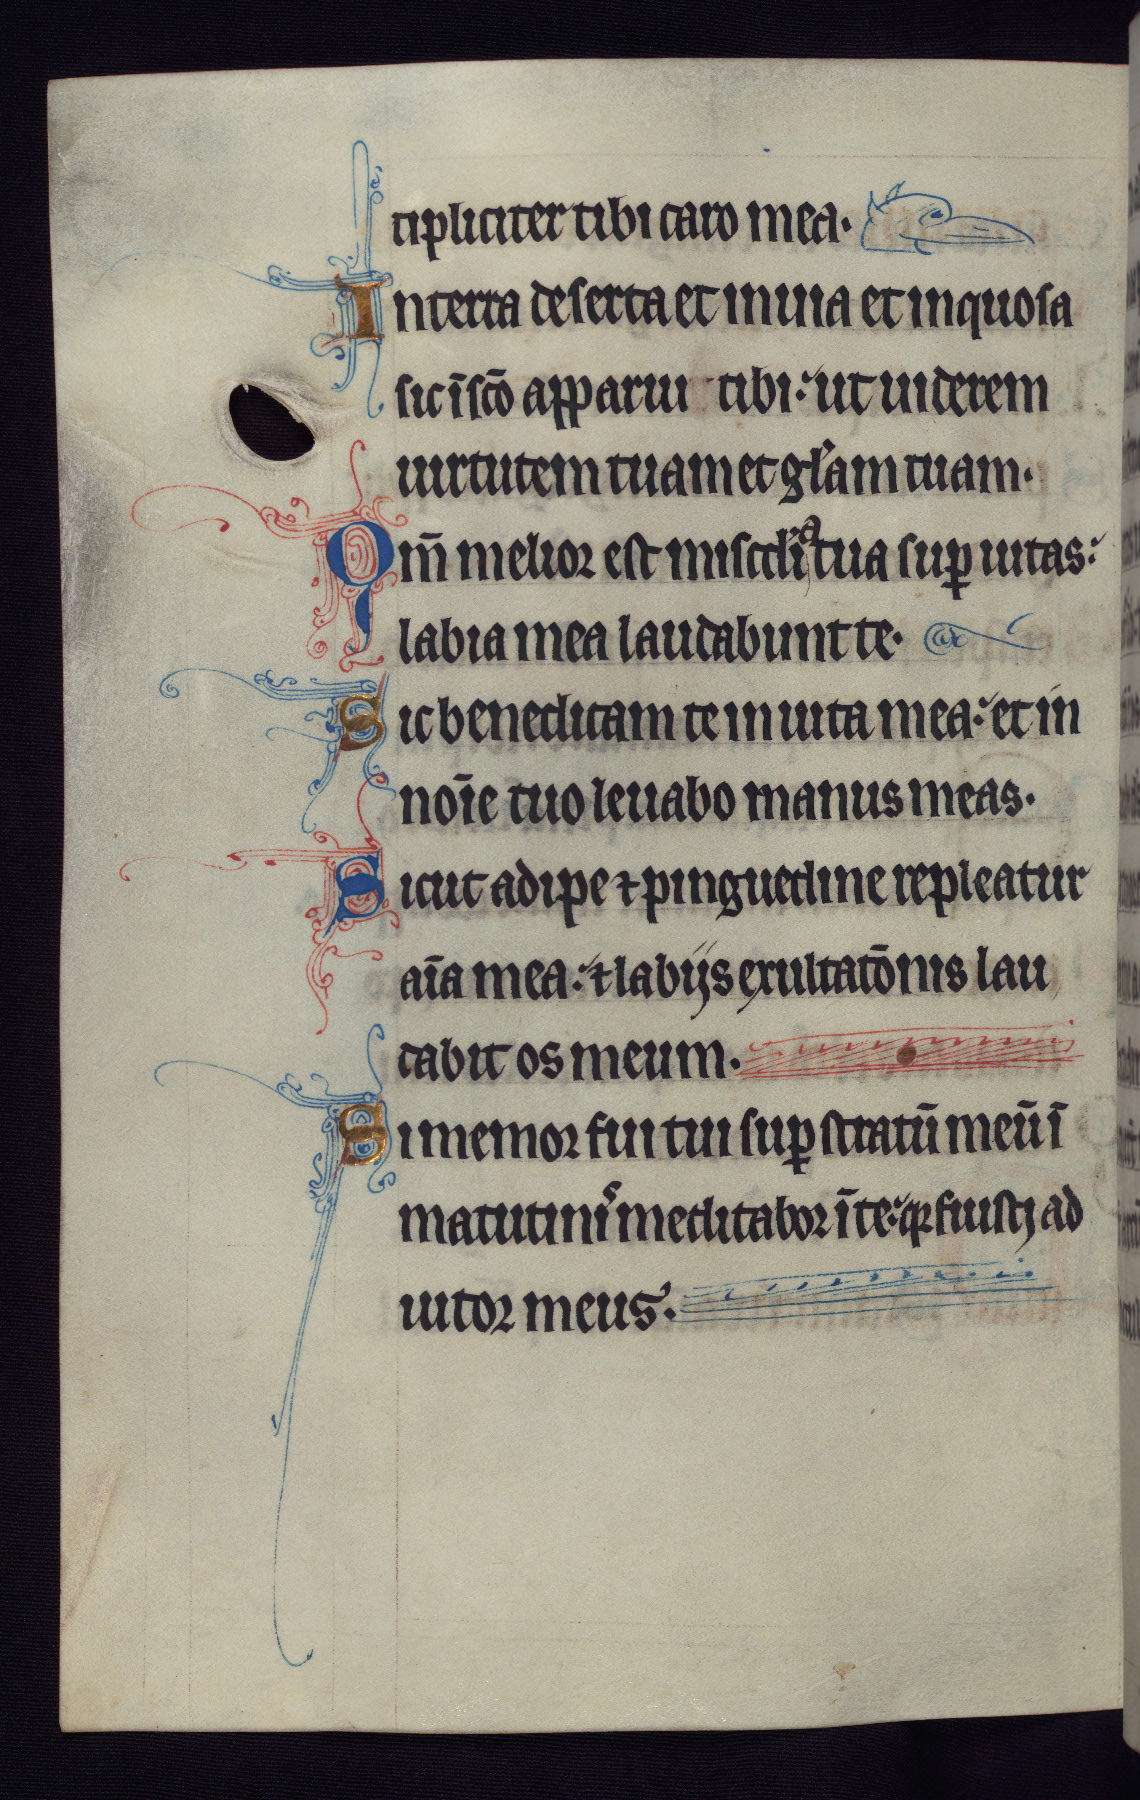 tipliciter tibi caro mea.
In terra deserta et inuia et inquosa
sic ī sc̄o apparui tibi: ut uiderem
uirtutem tuam et gl̄am tuam.
Qm̄ melior est miscdīa tua suꝑ uitas:
labia mea laudabunt te.
Sic benedicam te in uita mea: et in
noīe tuo leuabo manus meas.
Sicut adipe ⁊ pinguedine repleatur
aīa mea: ⁊ labijs exultatōnis lau
dabit os meum.
Si memor fui tui suꝑ stratū meū ī
matutinis meditabor ī te: qꝛ fuisti ad
iutor meus.